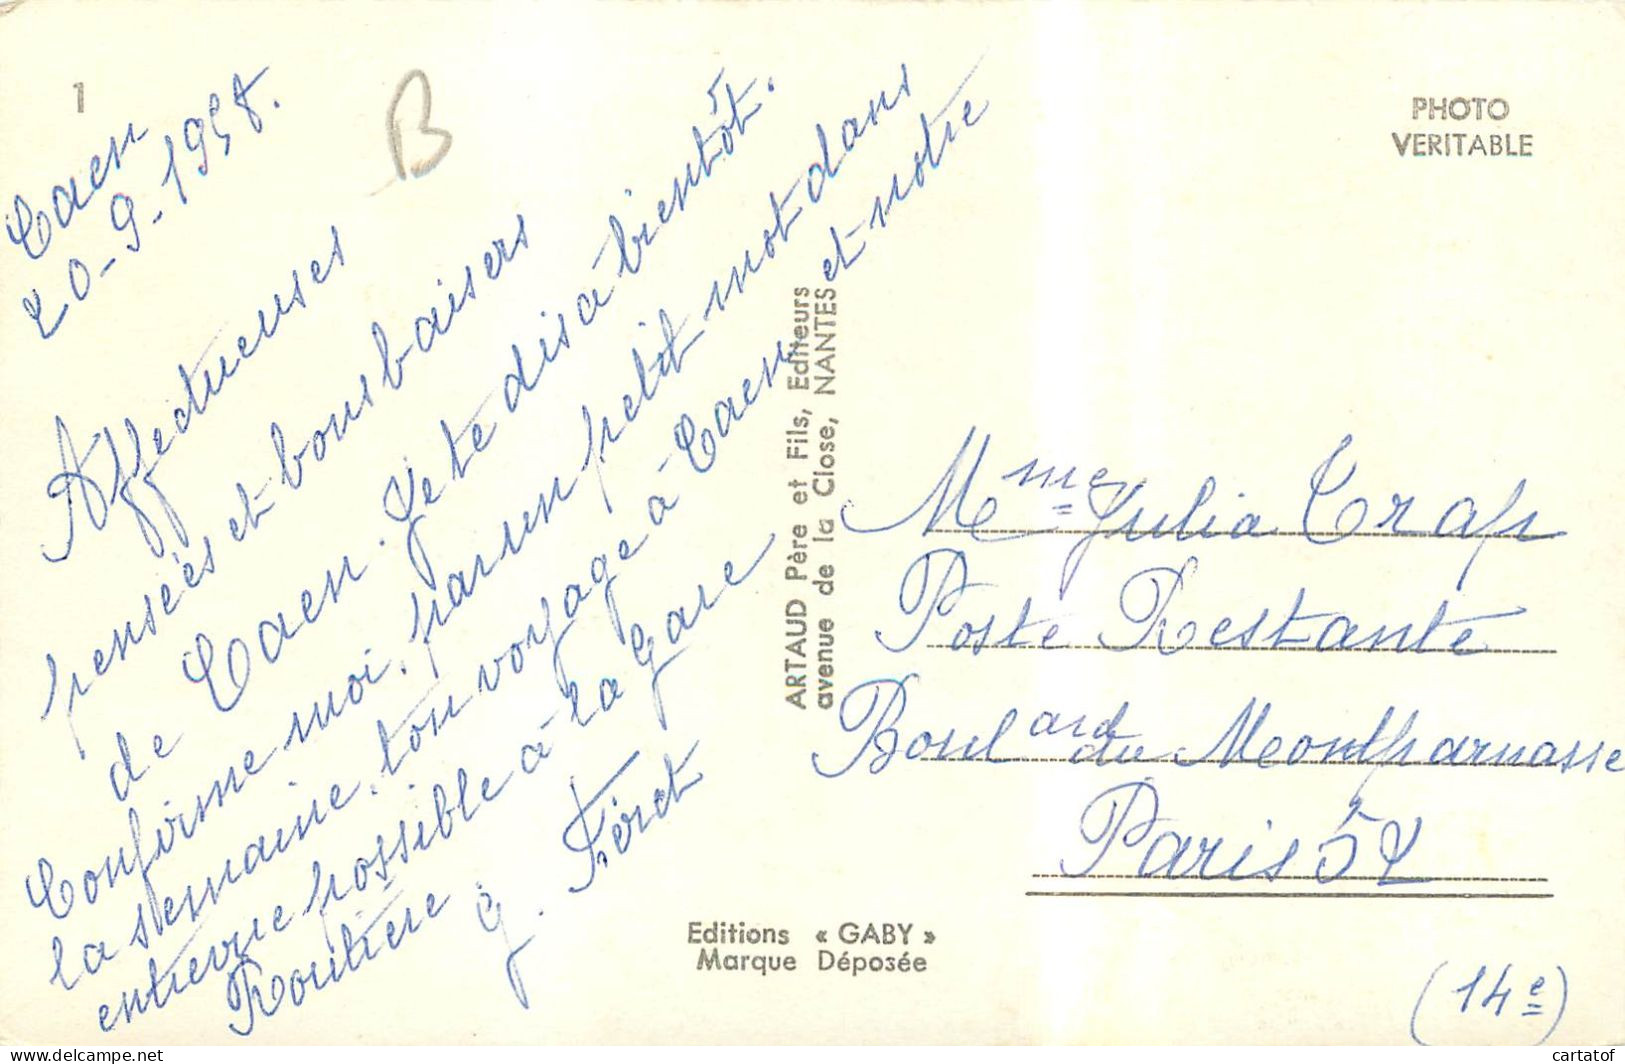 1
Caen
20-9-1958.
B
Affectueuses
pensées et bons baisers
de Caen. Je te dis à bientôt.
Confirme moi, par un petit mot dans
la semaine, ton voyage à Caen et notre
entrevue possible à la Gare
Routière
PHOTO
VERITABLE
ARTAUD Père et Fils, Editeurs
avenue de la Close, NANTES
Mme Julia Crap
Poste Restante
Boulard du Montparnasse
Paris 52
(14e)
Editions « GABY »
Marque Déposée
cartatof